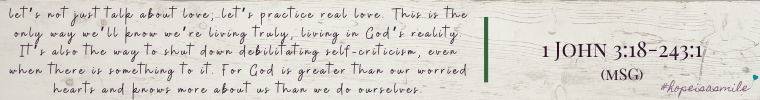 let's not just talk about love; let's practice real love. This is the
only way we'll know we're living truly, living in God's reality.
It's also the way to shut down debilitating self-criticism, even
when there is something to it. For God is greater than our worried
hearts and knows more about us than we do ourselves.
1 JOHN 3:18-243:1
(MSG)
#hopeisasmile